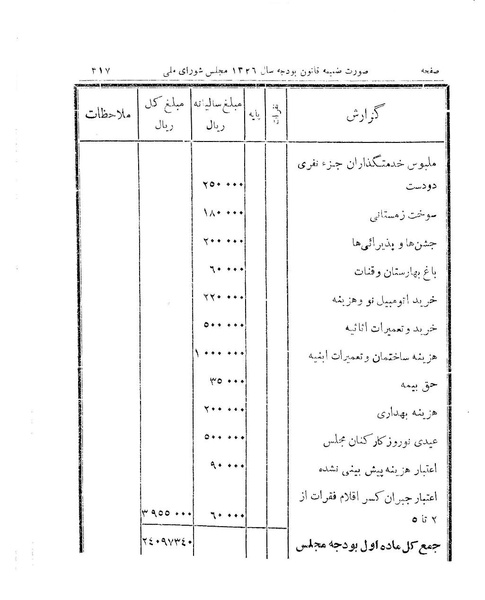 صفحه صورت ضمیمه قانون بودجه سال ۱۳۲۶ مجلس شورای ملی ۳۱۷
گزارش نمرات پایه مبلغ سالیانه ریال مبلغ کل ریال ملاحظات
ملبوس خدمتگذاران جزء نفری
دودست ۲۵۰۰۰۰
سوخت زمستانی ۱۸۰۰۰۰
جشن‌ها و پذیرائی‌ها ۲۰۰۰۰۰
باغ بهارستان و قنات ۶۰۰۰۰
خرید اتومبیل نو و هزینه ۲۲۰۰۰۰
خرید و تعمیرات اثاثیه ۵۰۰۰۰۰
هزینه ساختمان و تعمیرات ابنیه ۱۰۰۰۰۰۰
حق بیمه ۳۵۰۰۰
هزینه بهداری ۲۰۰۰۰۰
عیدی نوروز کارکنان مجلس ۵۰۰۰۰۰
اعتبار هزینه پیش بینی نشده ۹۰۰۰۰
اعتبار جبران کسر اقلام فقرات از
۲ تا ۵ ۶۰۰۰۰ ۳۹۵۵۰۰۰
جمع کل ماده اول بودجه مجلس ۲٤۰۹۷۳٤۰